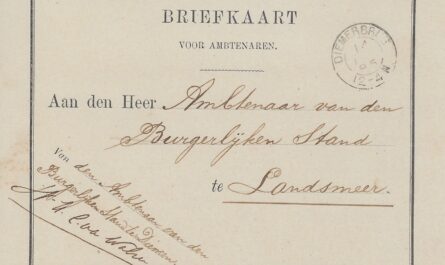 BRIEFKAART
VOOR AMBTENAREN.
Aan den Heer Ambtenaar van den
Burgerlijken Stand
te Landsmeer.
Van den Ambtenaar van den
Burgerlijken Stand te Diemen
DIEMERBRU
12-4N